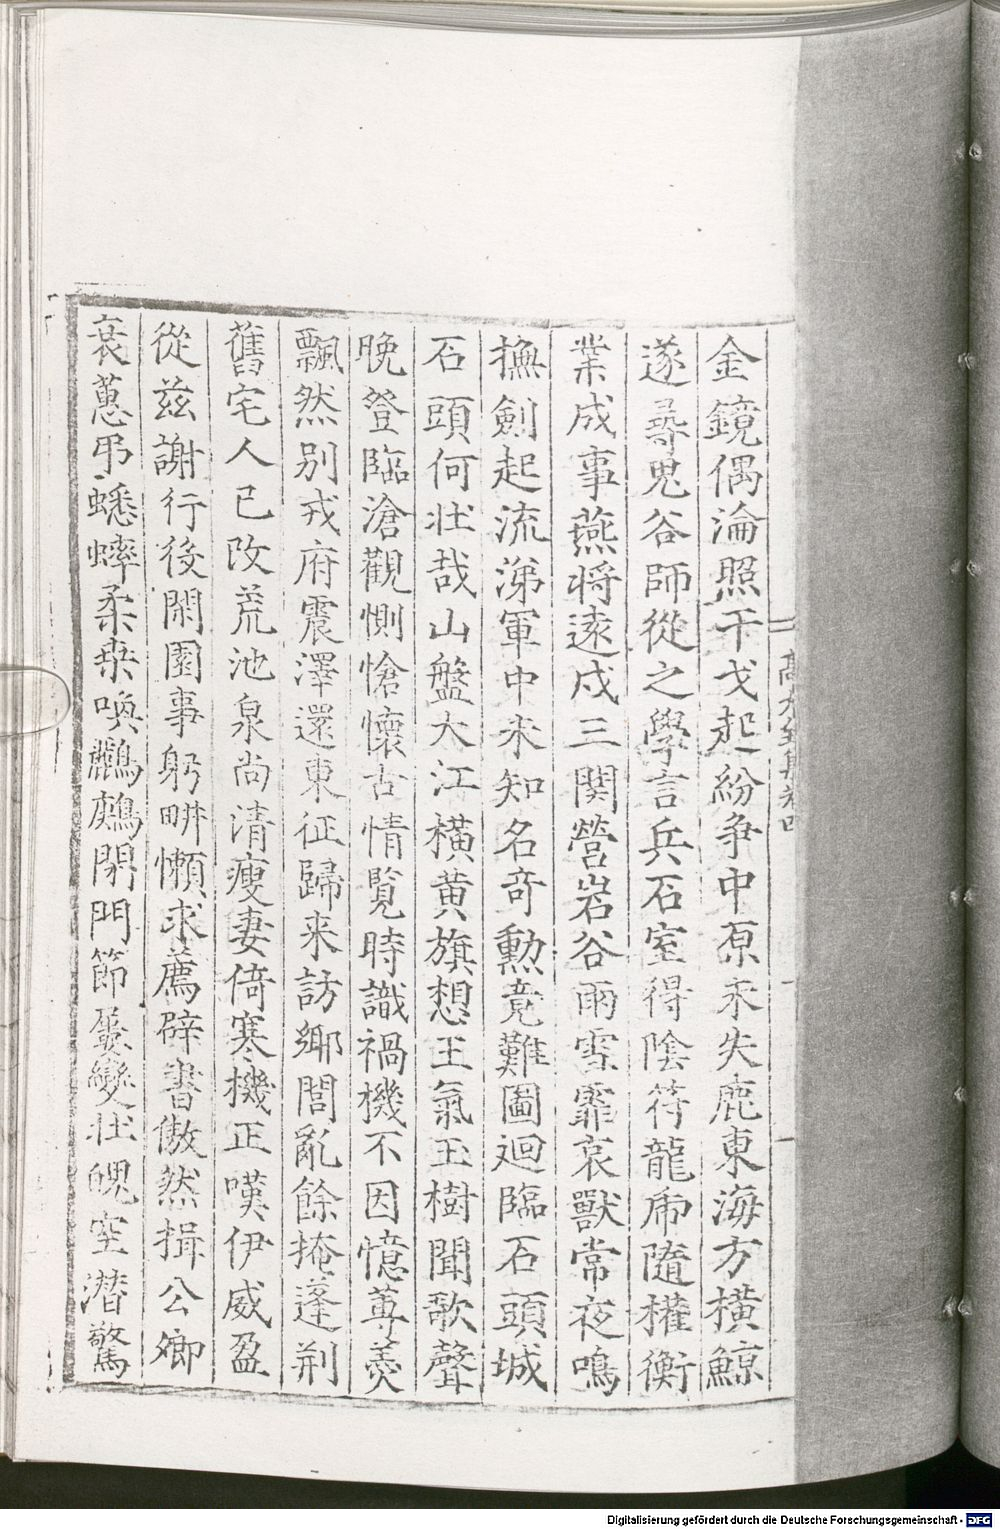 金鏡偶淪照干戈起紛爭中原未失鹿東海方橫鯨
遂尋鬼谷師從之學言兵石室得陰符龍虎隨權衡
業成事燕将遠戍三関營岩谷雨雪霏哀獸常夜鳴
撫劍起流涕軍中未知名竒勲竟難圖迴臨石頭城
石頭何壮哉山盤大江橫黄旗想王氣玉樹聞歌聲
晚登臨滄觀惻愴懷古情覧時識禍機不因憶蓴羮
飄然别戎府震澤還東征歸来訪鄉閭亂餘掩蓬荆
舊宅人已改荒池泉尚清瘦妻倚寒機正嘆伊威盈
從兹謝行役閑園事躬畊懶求薦辟書傲然揖公卿
衰蕙弔蟋蟀柔桑喚鸝鶊閉門節屢變壮魄空潜驚
高太全集卷四
Digitalisierung gefördert durch die Deutsche Forschungsgemeinschaft - DFG